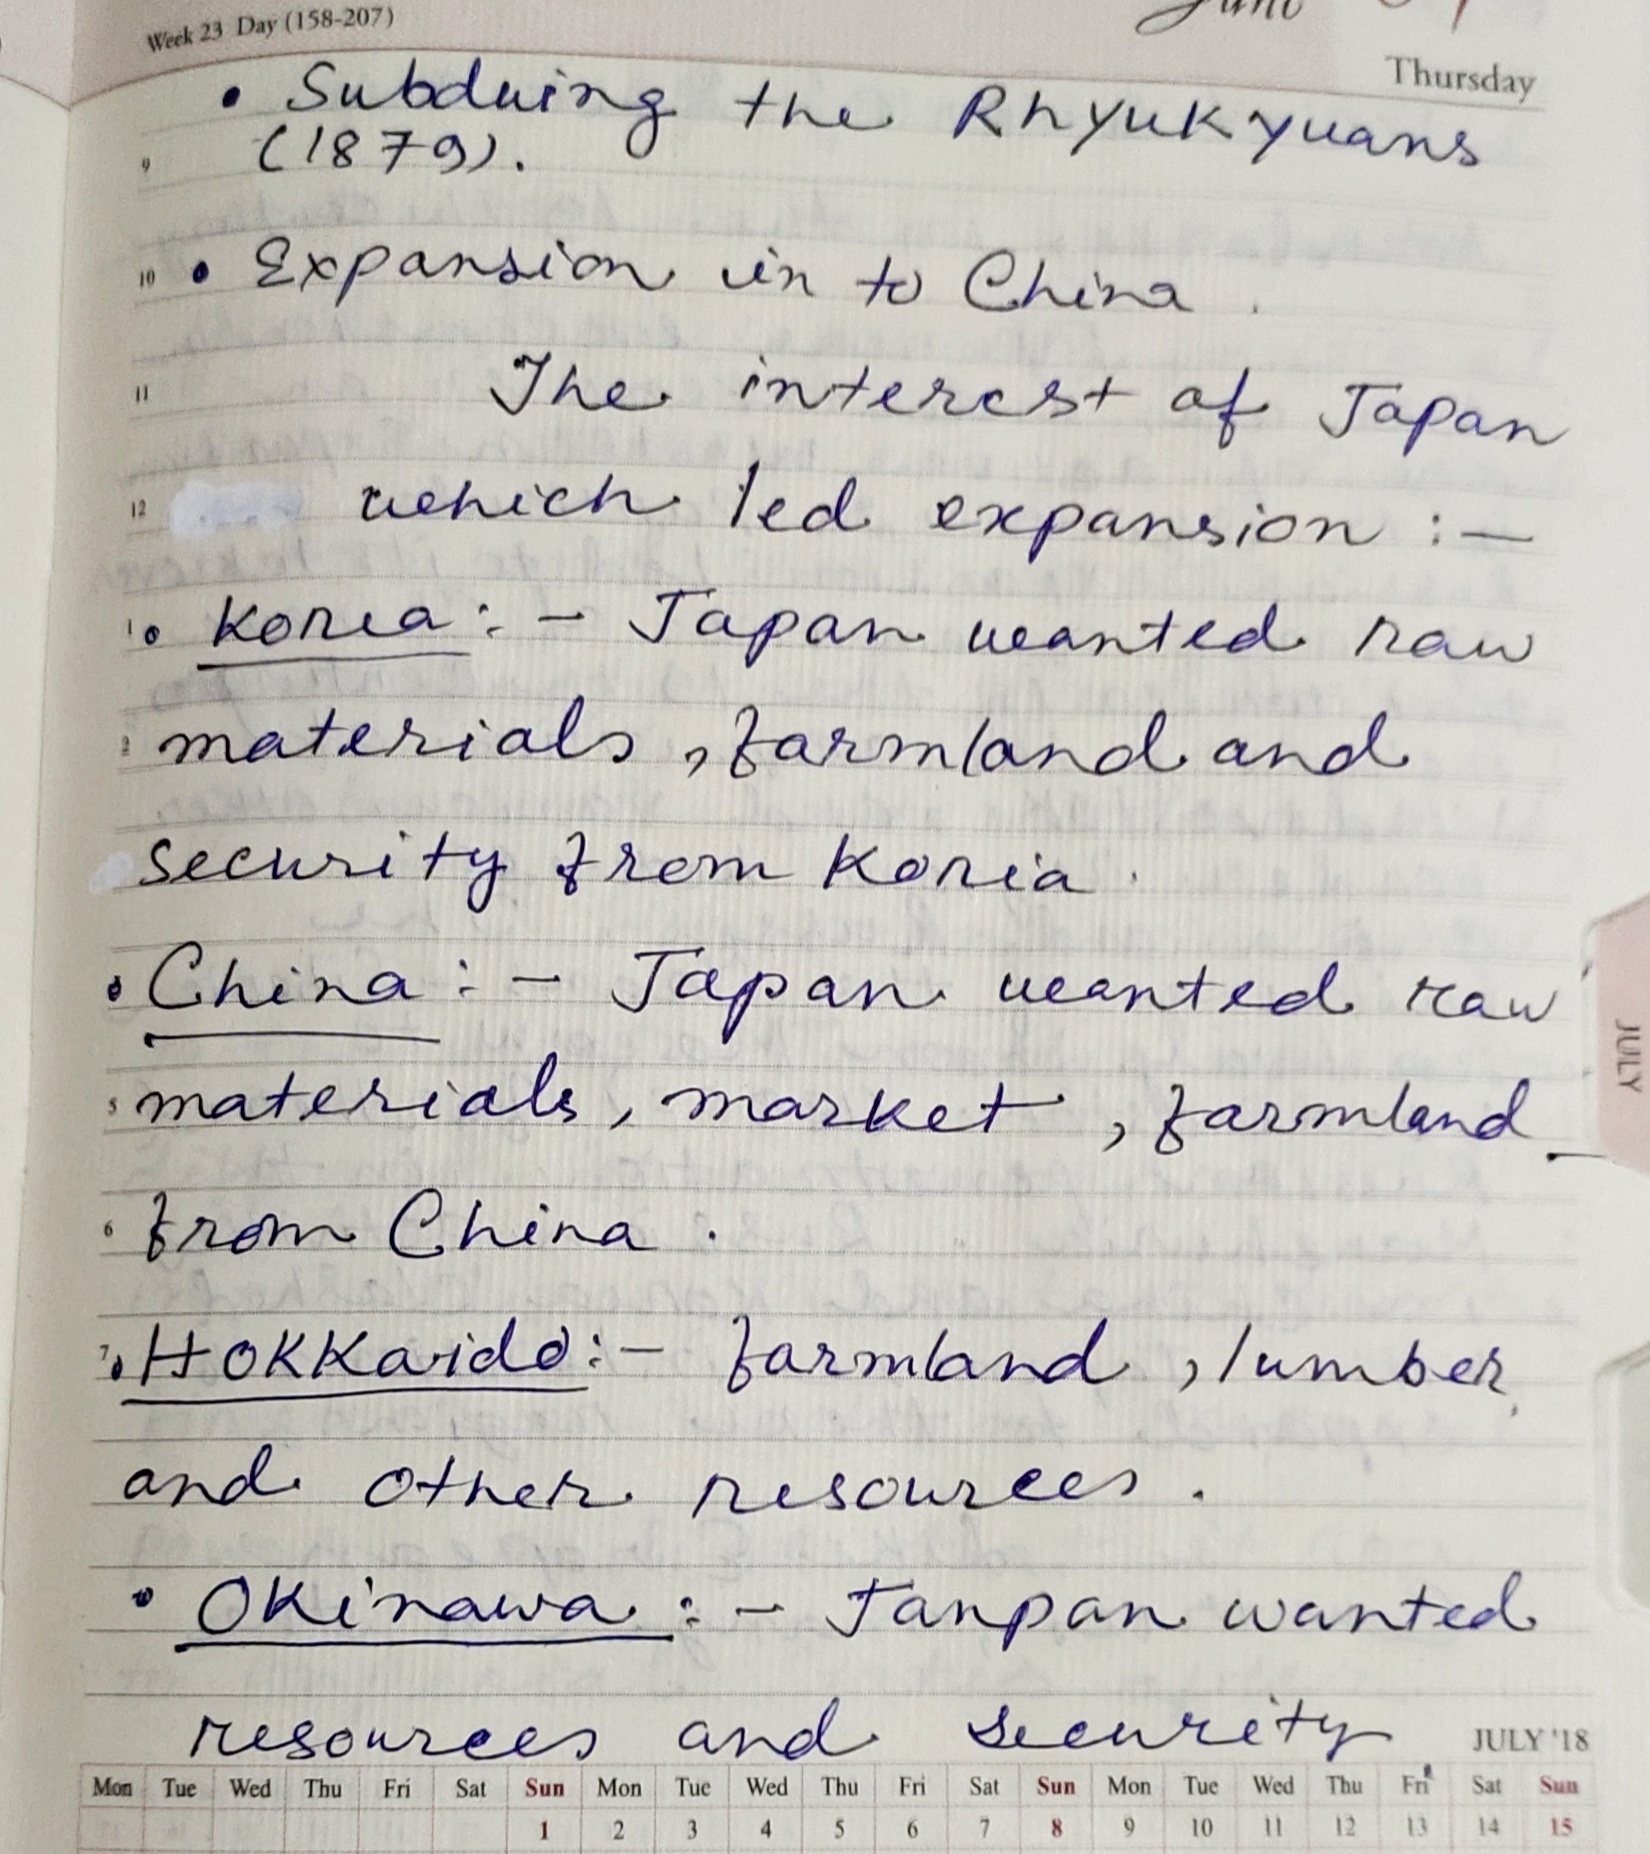 Week 23 Day (158-207)
June
Thursday
• Subduing the Rhyukyuans
9 (1879).
10 • Expansion in to China.
11 The interest of Japan
12 which led expansion :-
1 • Koria :- Japan wanted raw
2 materials, farmland and
security from Koria.
• China :- Japan wanted raw
5 materials, market, farmland
6 from China.
7 • Hokkaido :- farmland, lumber,
and other resources.
• Okinawa :- Janpan wanted
resources and security
JULY
JULY '18
Mon Tue Wed Thu Fri Sat Sun Mon Tue Wed Thu Fri Sat Sun Mon Tue Wed Thu Fri Sat Sun
1 2 3 4 5 6 7 8 9 10 11 12 13 14 15